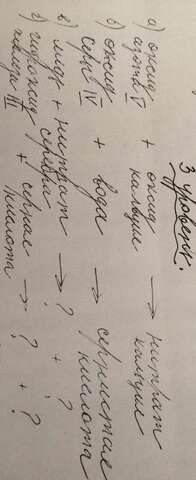 3 уровень.
а) оксид азота V + оксид кальция → нитрат кальция
б) оксид серы IV + вода → сернистая кислота
в) медь + нитрат серебра → ? + ?
г) гидроксид железа III + серная кислота → ? + ?